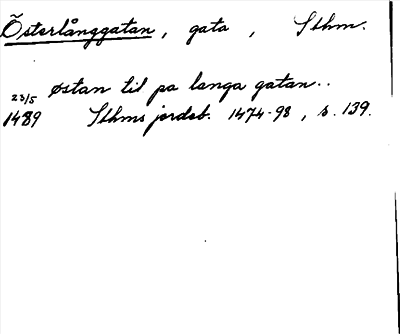 Österlånggatan, gata, Sthm.
østan til pa langa gatan..
23/5
1489 Sthms jordeb. 1474-98, s. 139.